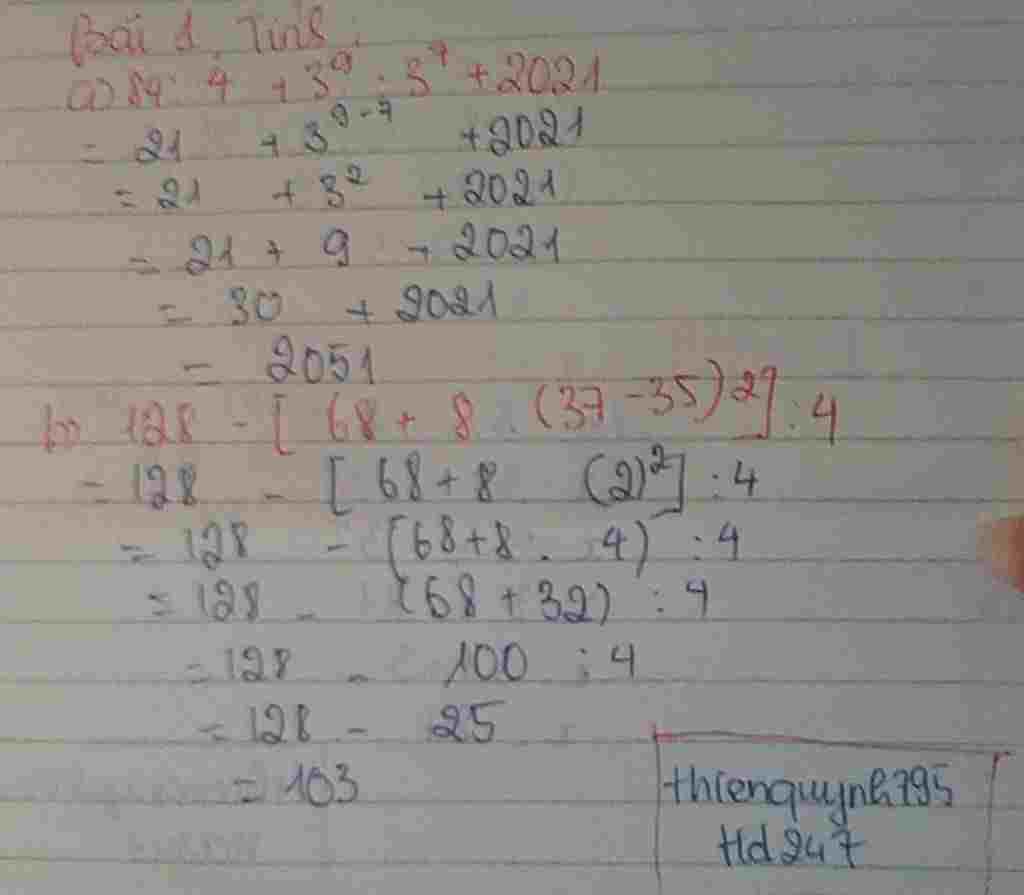 Bài 1. Tính.
a) 84 : 4 + 3⁹ : 3⁷ + 2021
= 21 + 3⁹⁻⁷ + 2021
= 21 + 3² + 2021
= 21 + 9 + 2021
= 30 + 2021
= 2051
b) 128 - [ 68 + 8 . (37 - 35)²] : 4
= 128 - [ 68 + 8 (2)²] : 4
= 128 - (68 + 8 . 4) : 4
= 128 - (68 + 32) : 4
= 128 - 100 : 4
= 128 - 25
= 103
thienquynh795
Hd247